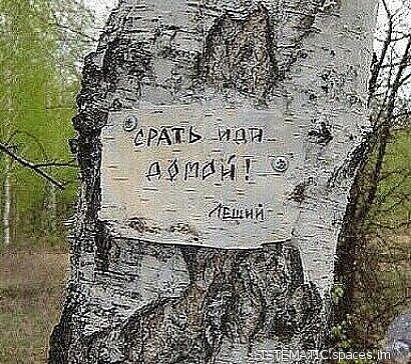 СРАТЬ ИДИ
ДОМОЙ!
ЛЕШИЙ
SYSTEMATIC.spaces.im